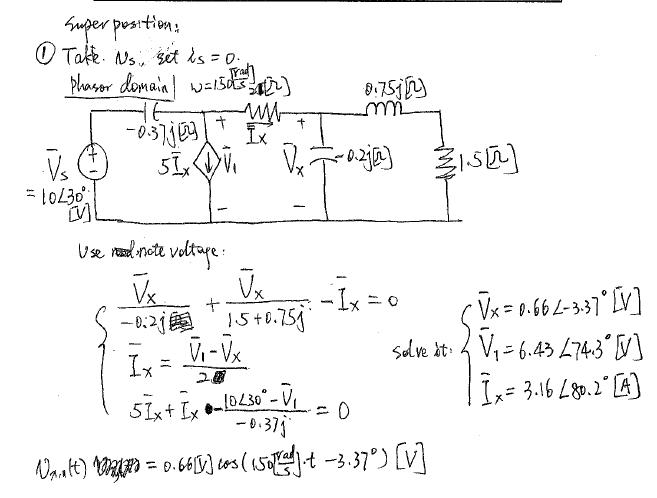 Superposition:
① Take Vs, set is = 0.
Phasor domain | ω=150[rad/s] 2[Ω] 0.75j[Ω]
-0.37j[Ω] + Īx +
V̄s + - 5Īx V̄1 V̄x -0.2j[Ω] 1.5[Ω]
= 10∠30° [V] - -
Use note voltage:
V̄x / -0.2j + V̄x / 1.5+0.75j - Īx = 0
Īx = V̄1-V̄x / 2
5Īx + Īx - 10∠30°-V̄1 / -0.37j = 0
solve it:
V̄x = 0.66∠-3.37° [V]
V̄1 = 6.43∠74.3° [V]
Īx = 3.16∠80.2° [A]
= 0.66[V] cos(150[rad/s]·t -3.37°) [V]